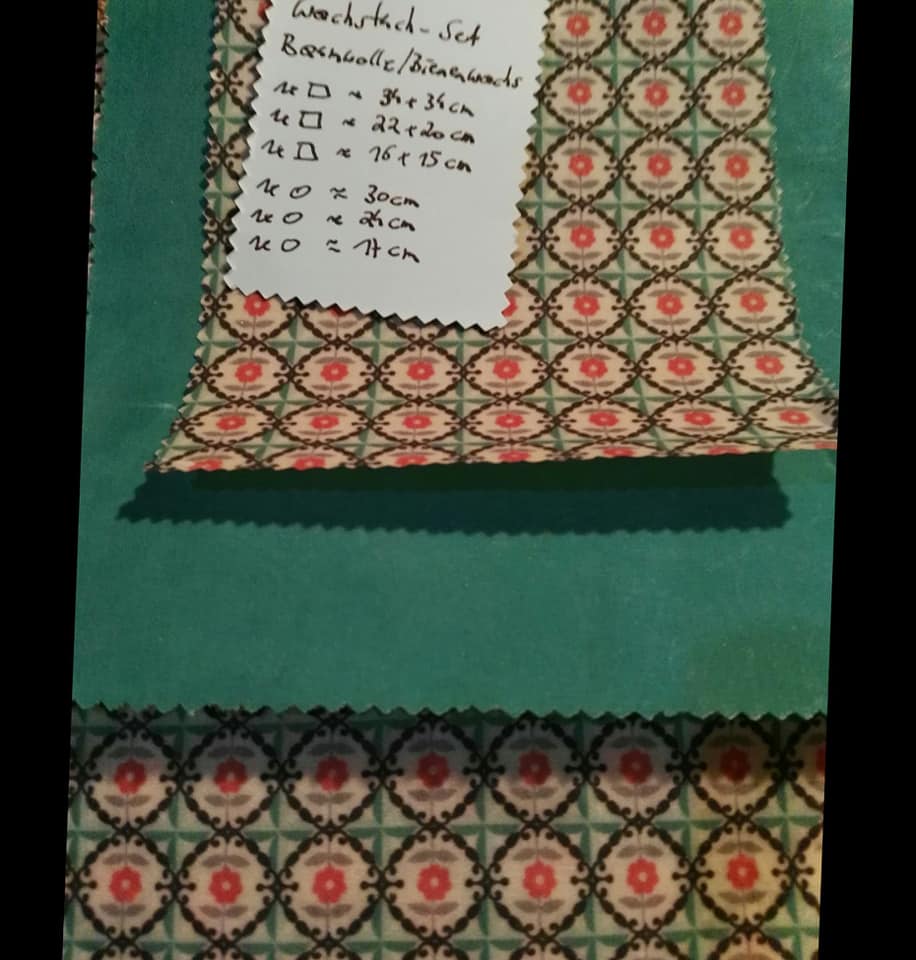 Wachstuch-Set
Baumwolle/Bienenwachs
1x □ ≈ 34 x 34 cm
1x □ ≈ 22 x 20 cm
1x □ ≈ 16 x 15 cm
1x O ≈ 30cm
1x O ≈ 24cm
1x O ≈ 17cm